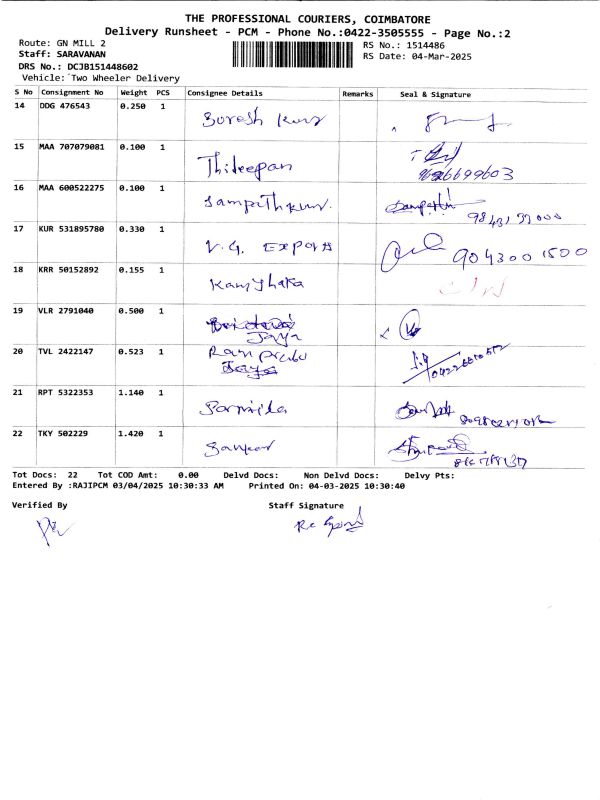 THE PROFESSIONAL COURIERS, COIMBATORE
Delivery Runsheet - PCM - Phone No.:0422-3505555 - Page No.:2
Route: GN MILL 2
RS No.: 1514486
Staff: SARAVANAN
RS Date: 04-Mar-2025
DRS No.: DCJB151448602
Vehicle: Two Wheeler Delivery
S No Consignment No Weight PCS Consignee Details Remarks Seal & Signature
14 DDG 476543 0.250 1 Suresh Kumr
15 MAA 707079081 0.100 1 Thileepan
16 MAA 600522275 0.100 1 Sampithkumr.
17 KUR 531895780 0.330 1 V.G. EXPORTS 9043001500
18 KRR 50152892 0.155 1
19 VLR 2791040 0.500 1 Jaya
20 TVL 2422147 0.523 1 Ram prabu
21 RPT 5322353 1.140 1 Sarmila
22 TKY 502229 1.420 1 Sankar
Tot Docs: 22 Tot COD Amt: 0.00 Delvd Docs: Non Delvd Docs: Delvy Pts:
Entered By :RAJIPCM 03/04/2025 10:30:33 AM Printed On: 04-03-2025 10:30:40
Verified By Staff Signature